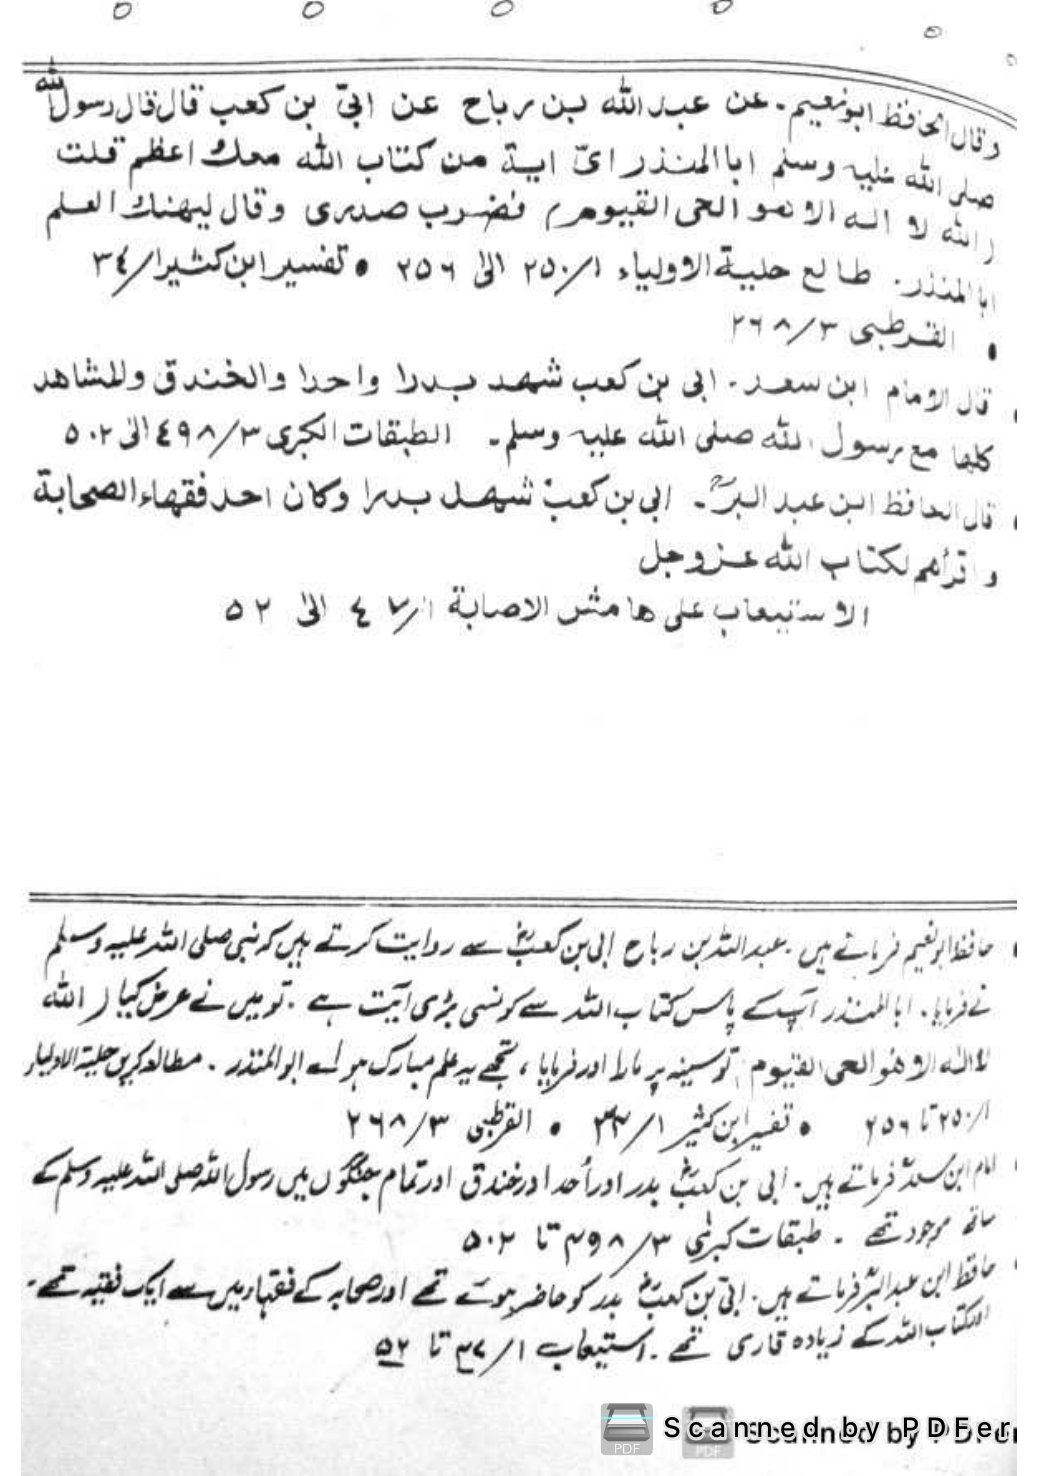 وقال الحافظ ابونعيم۔ عن عبد الله بن رباح عن ابيّ بن كعب قال قال رسول الله
صلى الله عليه وسلم ابا المنذر اىّ اية من كتاب الله معك اعظم قلت
(الله لا اله الا هو الحى القيوم) فضرب صدرى وقال ليهنك العلم
ابا المنذر۔ طالع حلية الاولياء ١/٢٥٠ الىٰ ٢٥٦ • تفسير ابن كثير ١/٣٤
• القرطبى ٣/٢٦٨
• قال الامام ابن سعد۔ ابى بن كعب شهد بدرا واحدا والخندق والمشاهد
كلها مع رسول الله صلى الله عليه وسلم۔ الطبقات الكبرى ٣/٤٩٨ الىٰ ٥٠٢
• قال الحافظ ابن عبد البرؒ۔ ابى بن كعبؓ شهد بدرا وكان احد فقهاء الصحابة
واقرأهم لكتاب الله عزوجل
الاستيعاب على هامش الاصابة ١/٤٧ الىٰ ٥٢
• حافظ ابونعیم فرماتے ہیں۔ عبداللہ بن رباح ابی بن کعبؓ سے روایت کرتے ہیں کہ نبی صلی اللہ علیہ وسلم
نے فرمایا۔ ابا المنذر آپ کے پاس کتاب اللہ سے کونسی بڑی آیت ہے۔ تو میں نے عرض کیا (اللہ
لا الہ الا ھو الحی القیوم) تو سینہ پر مارا اور فرمایا، تجھے یہ علم مبارک ہو اے ابوالمنذر۔ مطالعہ کریں حلیۃ الاولیاء
١/٢٥٠ تا ٢٥٦ • تفسیر ابن کثیر ١/٣٤ • القرطبی ٣/٢٦٨
• امام ابن سعدؒ فرماتے ہیں۔ ابی بن کعبؓ بدر اور اُحد اور خندق اور تمام جنگوں میں رسول اللہ صلی اللہ علیہ وسلم کے
ساتھ موجود تھے۔ طبقات کبریٰ ٣/٤٩٨ تا ٥٠٢
• حافظ ابن عبدالبرؒ فرماتے ہیں۔ ابی بن کعبؓ بدر کو حاضر ہوئے تھے اور صحابہ کے فقہاء میں سے ایک فقیہ تھے۔
کتاب اللہ کے زیادہ قاری تھے۔ استیعاب ١/٤٧ تا ٥٢
Scanned by PDFer
Scanned by PDFer